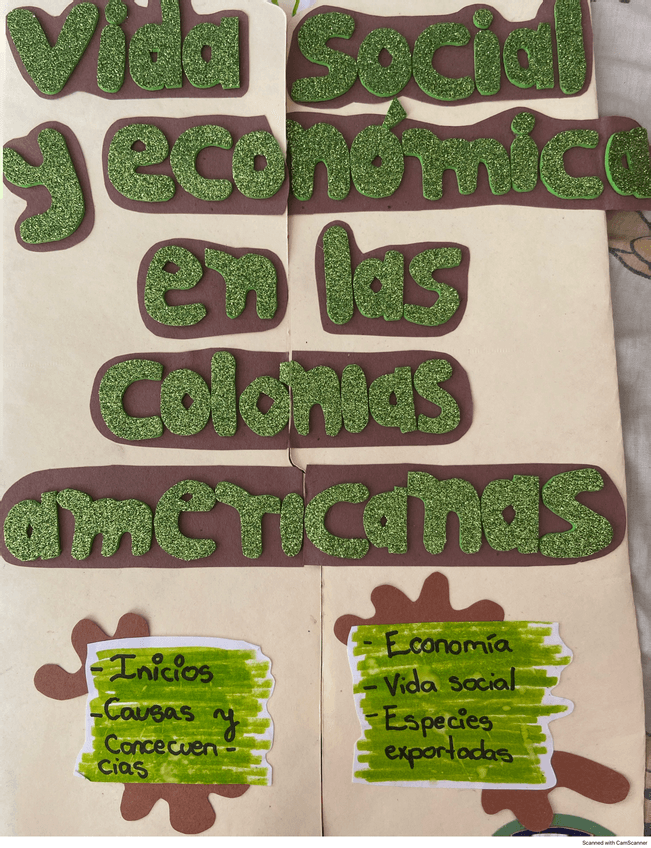 Vida Social
y económica
en las
Colonias
americanas
- Inicios
- Causas y
Concecuen -
cias
- Economía
- Vida social
- Especies
exportadas
Scanned with CamScanner